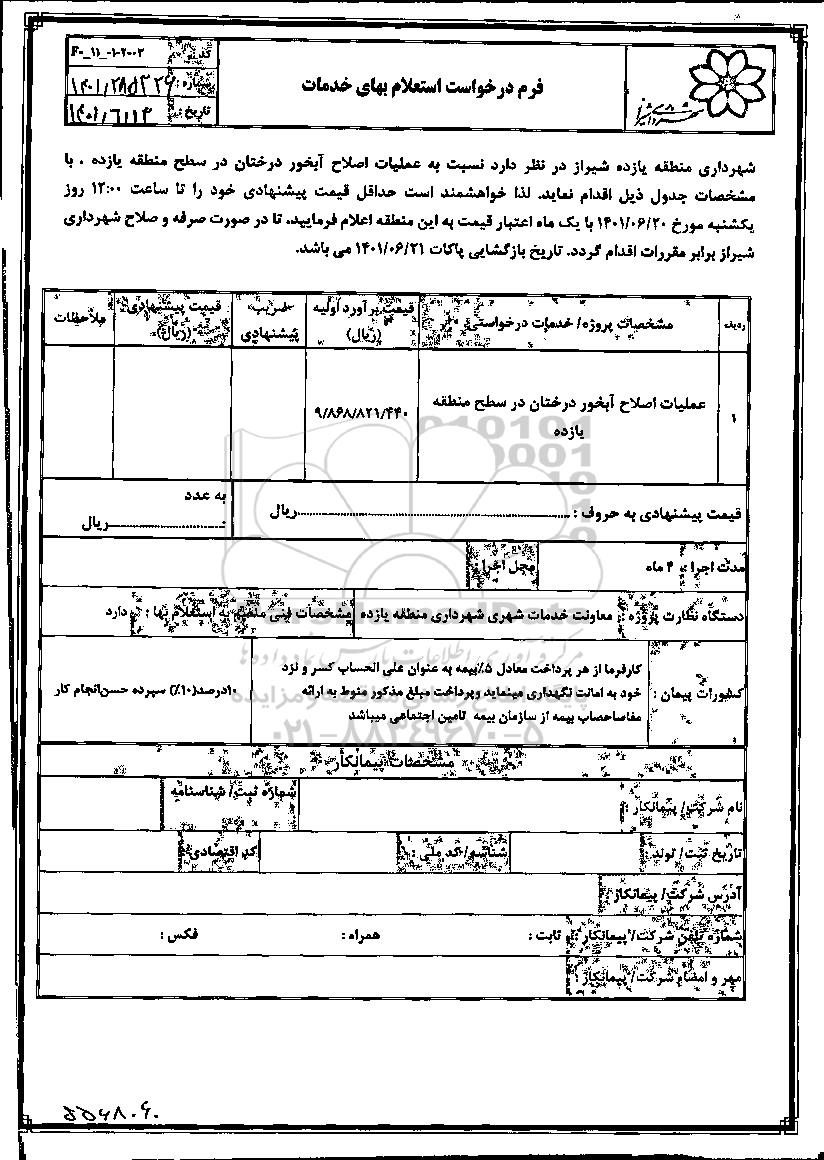 کد : F۰_۱۱_۰۱-۲۰۰۳
شماره : ۱۴۰۱/۲۸۵۳۲۶
تاریخ : ۱۴۰۱/۶/۱۳
فرم درخواست استعلام بهای خدمات
شهرداری شیراز
شهرداری منطقه یازده شیراز در نظر دارد نسبت به عملیات اصلاح آبخور درختان در سطح منطقه یازده ، با
مشخصات جدول ذیل اقدام نماید. لذا خواهشمند است حداقل قیمت پیشنهادی خود را تا ساعت ۱۲:۰۰ روز
یکشنبه مورخ ۱۴۰۱/۰۶/۲۰ با یک ماه اعتبار قیمت به این منطقه اعلام فرمایید. تا در صورت صرفه و صلاح شهرداری
شیراز برابر مقررات اقدام گردد. تاریخ بازگشایی پاکات ۱۴۰۱/۰۶/۲۱ می باشد.
ردیف مشخصات پروژه/ خدمات درخواستی قیمت برآورد اولیه (ریال) ضریب پیشنهادی قیمت پیشنهادی (ریال) ملاحظات
۱ عملیات اصلاح آبخور درختان در سطح منطقه یازده ۹/۸۶۸/۸۲۱/۴۴۰
قیمت پیشنهادی به حروف : ........................ریال
به عدد
........................ریال
مدت اجرا : ۴ ماه محل اجرا :
دستگاه نظارت پروژه : معاونت خدمات شهری شهرداری منطقه یازده مشخصات فنی منضم به استعلام بها : دارد
کسورات پیمان :
کارفرما از هر پرداخت معادل ۵٪بیمه به عنوان علی الحساب کسر و نزد
خود به امانت نگهداری مینماید وپرداخت مبلغ مذکور منوط به ارائه
مفاصاحصاب بیمه از سازمان بیمه تامین اجتماعی میباشد
۱۰درصد(۱۰٪) سپرده حسن‌انجام کار
مشخصات پیمانکار
نام شرکت/ پیمانکار : شماره ثبت/ شناسنامه
تاریخ ثبت/ تولد : شناسه/ کد ملی : کد اقتصادی :
آدرس شرکت/ پیمانکار :
شماره تلفن شرکت/ پیمانکار : ثابت : همراه : فکس :
مهر و امضاء شرکت/ پیمانکار :
۰۲۱-۸۸۳۴۹۶۷۰-۵